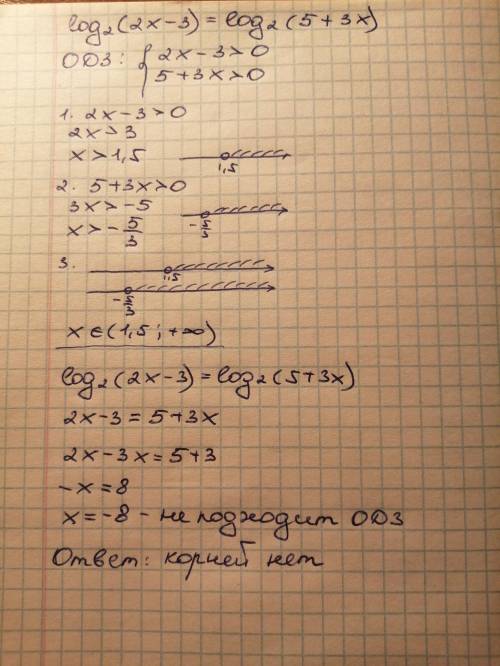 log₂(2x-3) = log₂(5+3x)
ОДЗ: { 2x-3>0
5+3x>0
1. 2x-3>0
2x>3
x>1,5
1,5
2. 5+3x>0
3x>-5
x>-5/3
-5/3
3.
1,5
-5/3
x∈(1,5; +∞)
log₂(2x-3) = log₂(5+3x)
2x-3 = 5+3x
2x-3x=5+3
-x=8
x=-8 - не подходит ОДЗ
Ответ: корней нет